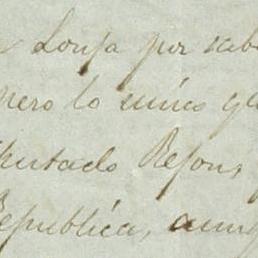 Lonja por sab
pero lo unico q
putado Refon,
Republica, aunq